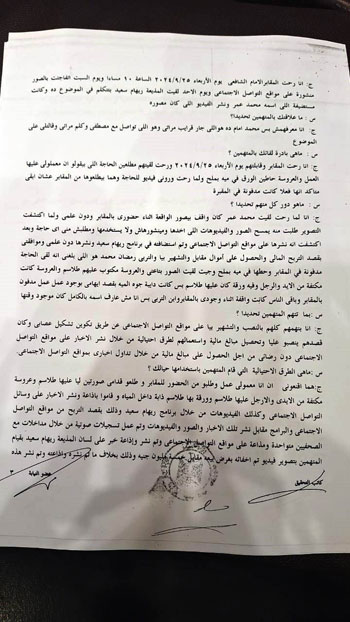 ج: انا رحت المقابر الامام الشافعى يوم الأربعاء ٢٠٢٤/٩/٢٥ الساعة ١٠ مساءا ويوم السبت اتفاجئت بالصور
منشورة على مواقع التواصل الاجتماعى ويوم الاحد لقيت المذيعة ريهام سعيد بتتكلم فى الموضوع ده وكانت
مستضيفة اللى اسمه محمد عمر ونشر الفيديو اللى كان مصوره
س: ما علاقتك بالمتهمين تحديدا؟
ج: انا معرفهمش بس محمد امام ده هو اللى جار قرايب مراتى وهو اللى تواصل مع مصطفى وكلم مراتى وقالتلى على
الموضوع
س: ماهى بادرة لقائك بالمتهمين ؟
ج: انا رحت المقابر وقابلتهم يوم الأربعاء ٢٠٢٤/٩/٢٥ ورحت لقيتهم مطلعين الحاجة اللى بيقولو ان معمولى عليها
العمل والعروسة حاطين الورق فى ميه بملح ولما رحت ورونى فيديو للحاجة وهما بيطلعوها من المقابر عشان ابقى
متأكد انها فعلا كانت مدفونة فى المقبرة
س: ماهو دور كل متهم تحديدا؟
ج: انا رحت لقيت محمد عمر كان واقف بيصور الواقعة اثناء حضورى بالمقابر ودون علمى ولما اكتشفت
التصوير طلبت منه يمسح الصور والفيديوهات اللى اخدها وميتشورهاش ولا يستخدمها ومطلبش منى اى حاجة وبعد
اكتشفت انه نشرها على مواقع التواصل الاجتماعى وتم استضافته فى برنامج ريهام سعيد ونشرها دون علمى وموافقتى
بقصد التربح المالى والحصول على أموال مقابل والتشهير بيا والتربى رمضان محمد هو اللى بلغنى انه لقى الحاجة
مدفونة فى المقابر وحطها فى ميه بملح وجيت لقيت الصور بتاعتى والعروسة مكتوب عليهم طلاسم والعروسة كانت
مكتفة من الايد والرجل وفيه ورقة كان عليها طلاسم بس كانت دايبة جوه الميه بقصد ايهامى بوجود عمل عمل مدفون
بالمقابر وباقى الناس كانت واقفة اثناء وجودى بالمقابر وابن التربى بس انا مش عارف اسمه بالكامل كان موجود وقتها
س: بما تتهم المتهمين تحديدا؟
ج: انا بتهمهم كلهم بالنصب والتشهير بيا على مواقع التواصل الاجتماعى عن طريق تكوين تشكيل عصابى وكان
قصدهم بتنصبو عليا وتحصيل مبالغ مالية واستعمالهم لطرق احتيالية من خلال نشر الاخبار على مواقع التواصل
الاجتماعى دون رضائى من اجل الحصول على مبالغ مالية من خلال تداول اخبارى بمواقع التواصل الاجتماعى.
س: ماهى الطرق الاحتيالية التى قام المتهمين باستخدامها حيالك ؟
ج: هما اقنعونى ان انا معمولى عمل وطلبو من الحضور للمقابر و طلعو قدامى صورتين ليا عليها طلاسم وعروسة
مكتفة من الايدى والارجل عليها طلاسم وورقة بها طلاسم ذابة داخل المياه و قاموا بإذاعة ونشر الاخبار على وسائل
التواصل الاجتماعى وكذلك الفيديوهات من خلال برنامج ريهام سعيد وذلك بقصد التربح من مواقع التواصل
الاجتماعى والبرامج مقابل نشر تلك الاخبار والصور والفيديوهات وتم عمل تسجيلات صوتية من خلال مداخلات مع
الصحفيين متواجدة ومذاعة على مواقع التواصل الاجتماعى وتم نشر وإذاعة خبر على لسان المذيعة ريهام سعيد بقيام
المتهمين بتصوير فيديو تم اخفائه بغرض بيعه مقابل مليون جنيه وذلك بخلاف ما تم نشره واذاعته وتم نشر هذه
كاتب التحقيق
عضو النيابة
٣